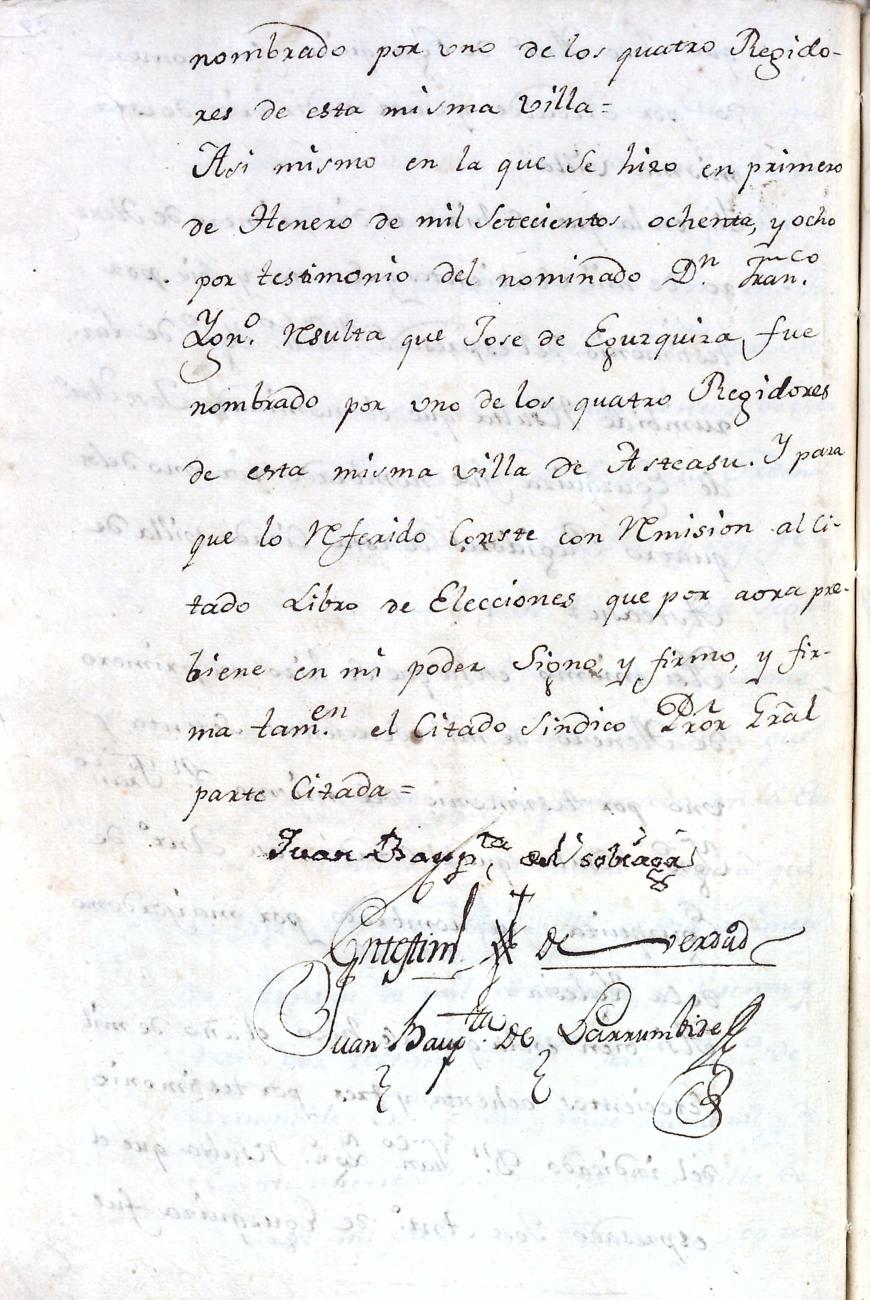 nombrado por vno de los quatro Regido-
res de esta misma villa =
Asi mismo en la que se hizo en primero
de Henero de mil setecientos ochenta, y ocho
por testimonio del nominado Dn. Franco.
Ygno. Rsulta que Jose de Egurquiza fue
nombrado por vno de los quatro Regidores
de esta misma villa de Asteasu. Y para
que lo Rferido Conste con Rmision al Ci-
tado Libro de Elecciones que por aora pre-
biene en mi poder Signo, y firmo, y fir-
ma tamen. el Citado Sindico Pror Gral
parte Citada =
Juan Baupta
Entestim de verdad
Juan Baupta. de Larrumbide